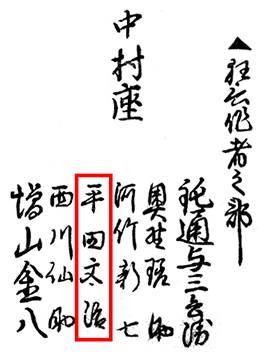 ▲狂言作者之部
中村座
銃通与三兵衛
奥埜瑳助
河竹新七
平田文治
西川仙助
増山金八